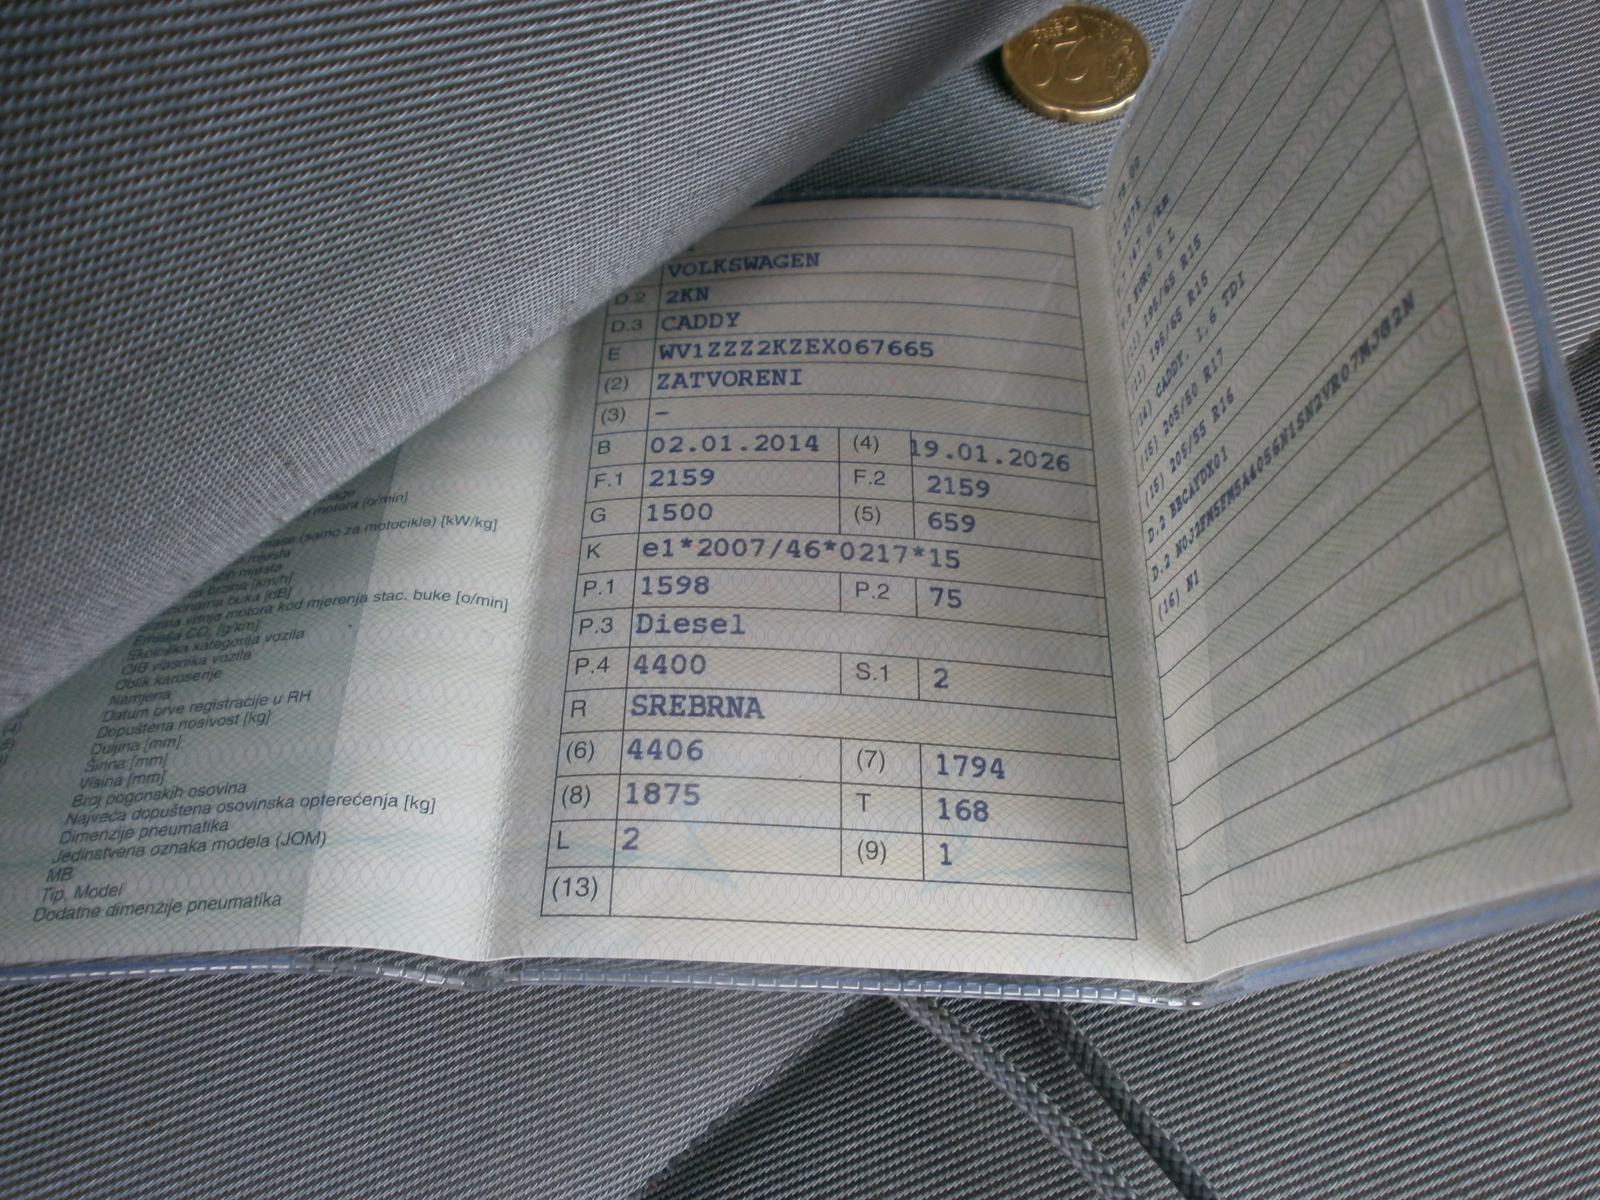 20
VOLKSWAGEN
D.2 2KN
D.3 CADDY
E WV1ZZZ2KZEX067665
(2) ZATVORENI
(3) –
B 02.01.2014 (4) 19.01.2026
F.1 2159 F.2 2159
G 1500 (5) 659
K e1*2007/46*0217*15
P.1 1598 P.2 75
P.3 Diesel
P.4 4400 S.1 2
R SREBRNA
(6) 4406 (7) 1794
(8) 1875 T 168
L 2 (9) 1
(13)
motora [o/min]
(samo za motocikle) [kW/kg]
mjesta
mjesta
brzina [km/h]
buka [dB]
vrtnje motora kod mjerenja stac. buke [o/min]
Emisija CO2 [g/km]
Ekološka kategorija vozila
OIB vlasnika vozila
Oblik karoserije
Namjena
(4) Datum prve registracije u RH
Dopuštena nosivost [kg]
Duljina [mm]
Širina [mm]
Visina [mm]
Broj pogonskih osovina
Najveća dopuštena osovinska opterećenja [kg]
Dimenzije pneumatika
Jedinstvena oznaka modela (JOM)
MB
Tip, Model
Dodatne dimenzije pneumatika
147 g/km
EURO 5 L
195/65 R15
(11) 195/65 R15
(14) CADDY. 1,6 TDI
(15) 205/50 R17
(15) 205/55 R16
D.2 BBCAYDX01
(16) N1